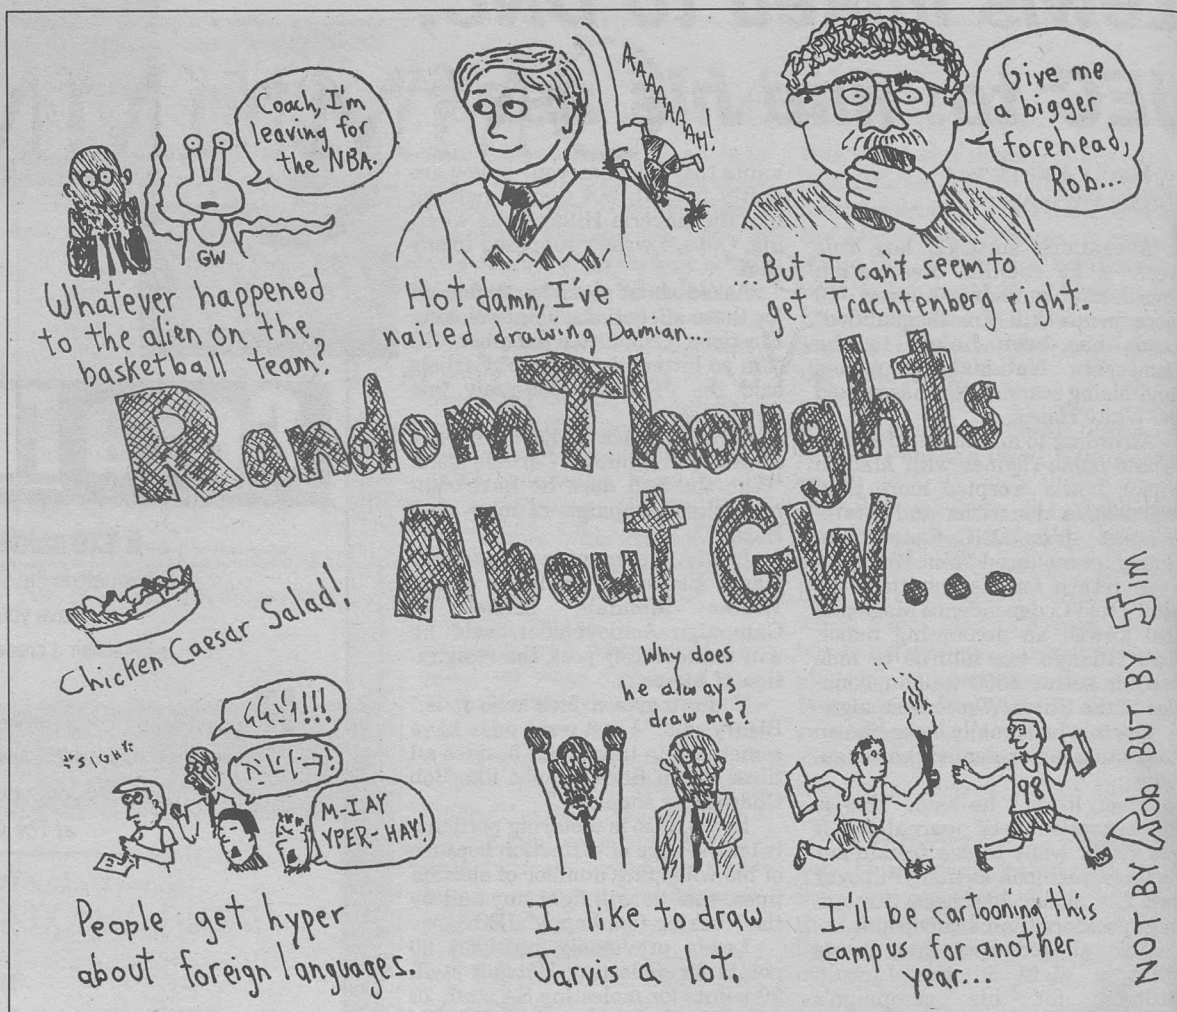 Coach, I'm
leaving for
the NBA.
GW
Whatever happened
to the alien on the
basketball team?
AAAAAAAAH!
Hot damn, I've
nailed drawing Damian...
Give me
a bigger
forehead,
Rob...
...But I can't seem to
get Trachtenberg right.
Random Thoughts
About GW...
Chicken Caesar Salad!
M-I AY
YPER-HAY!
People get hyper
about foreign languages.
Why does
he always
draw me?
I like to draw
Jarvis a lot.
97
98
I'll be cartooning this
campus for another
year...
NOT BY ROB BUT BY JIM